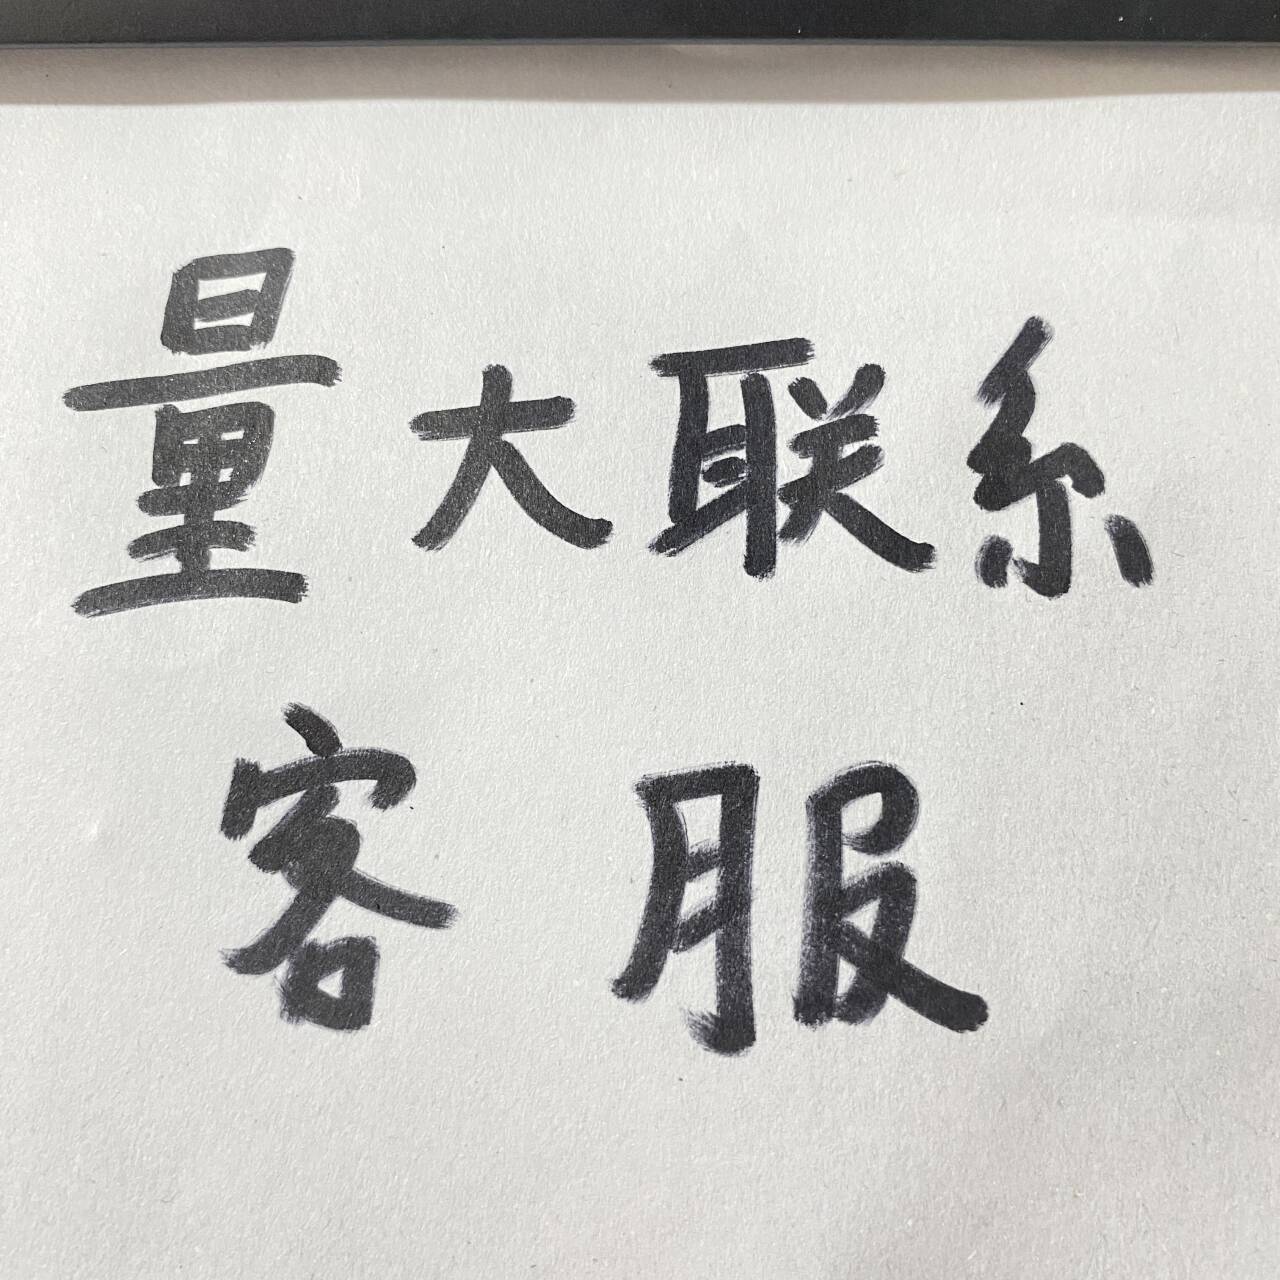 量大联系
客服